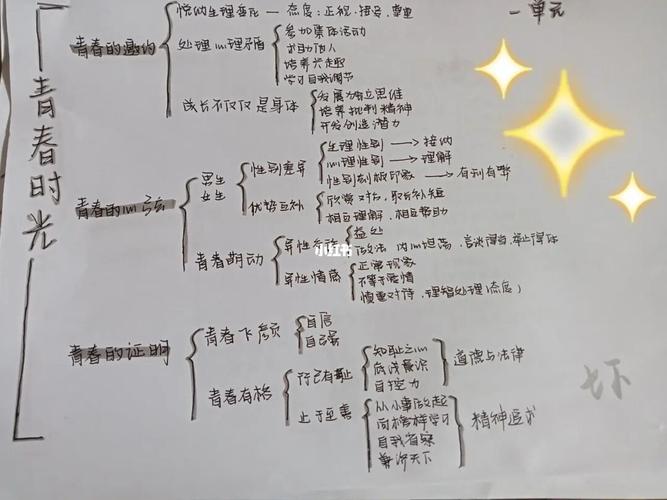 一单元
青春时光
青春的邀约
悦纳生理变化 — 态度：正视、接受、尊重
处理心理矛盾
参加集体活动
求助他人
培养兴趣
学习自我调节
成长不仅仅是身体
发展独立思维
培养批判精神
开发创造潜力
青春的心弦
男生
女生
性别差异
生理性别 → 接纳
心理性别 → 理解
性别刻板印象 → 有利有弊
优势互补
欣赏对方，取长补短
相互理解，相互帮助
青春萌动
异性
益处
做法 内心坦荡，言谈得当，举止得体
异性情感
正常现象
不等于爱情
慎重对待，理智处理（态度）
小红书
青春的证明
青春飞扬
自信
自强
青春有格
行己有耻
知耻之心
底线意识
自控力
道德与法律
止于至善
从小事做起
向榜样学习
自我省察
兼济天下
精神追求